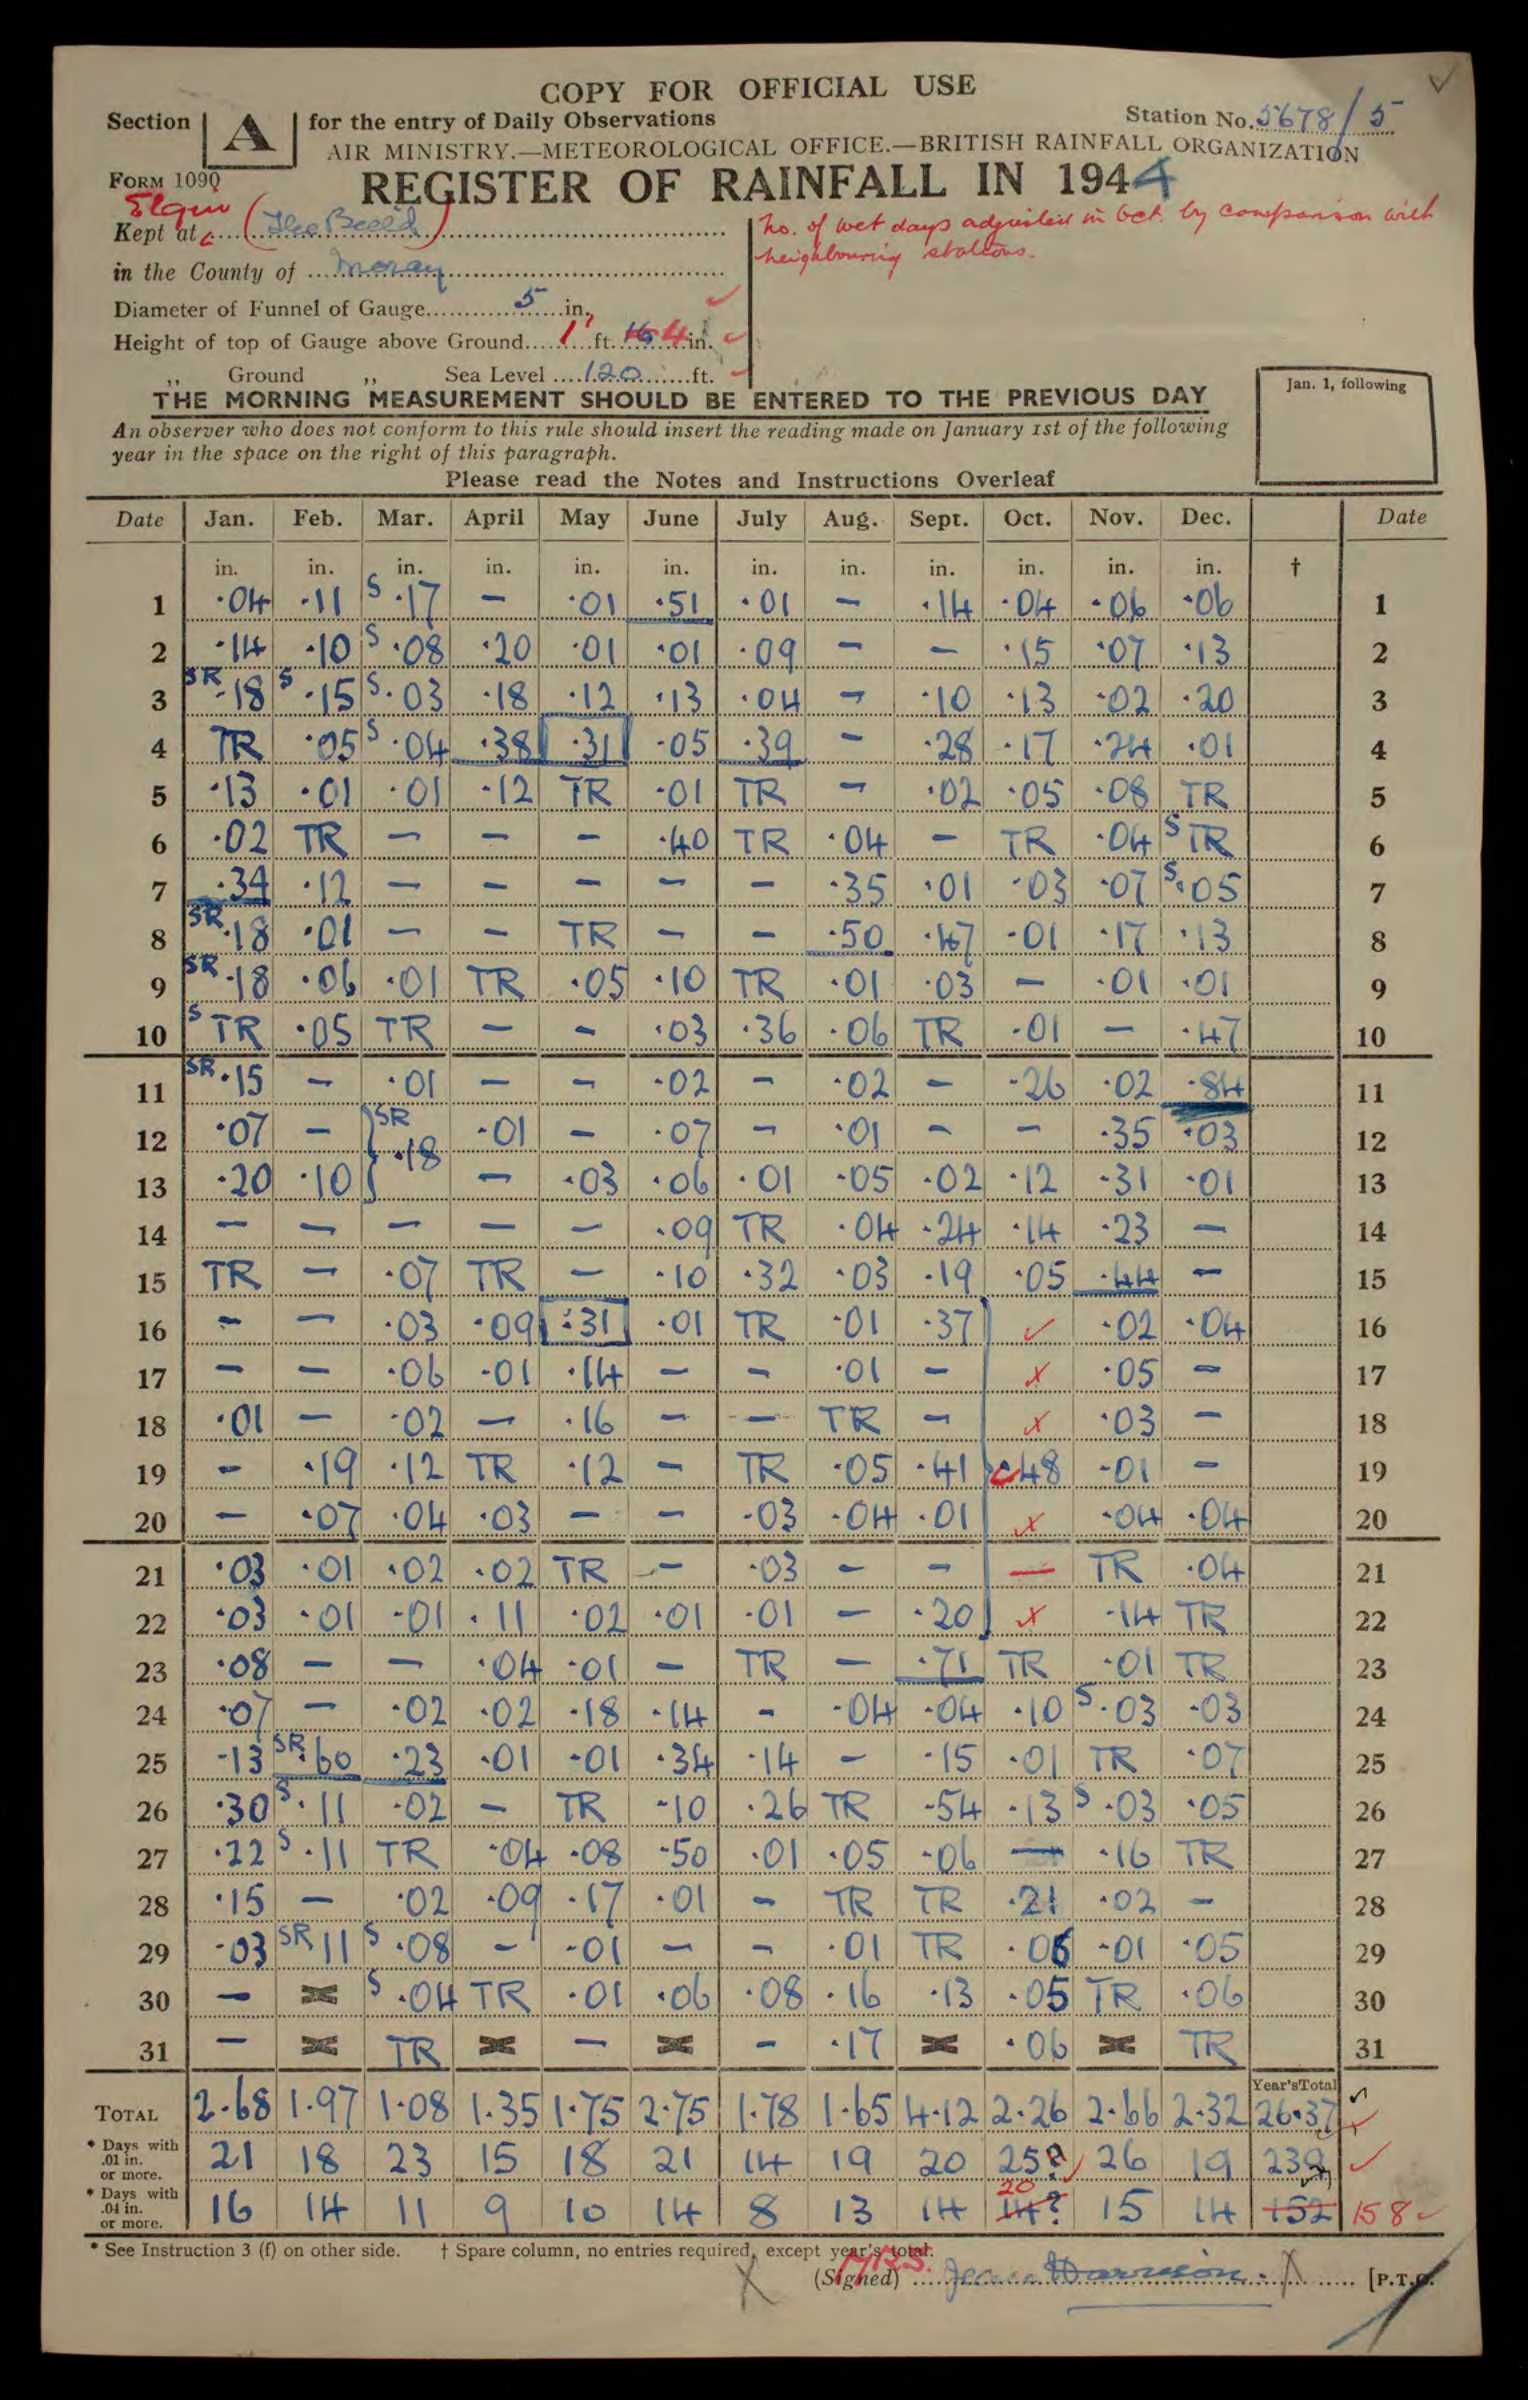 COPY FOR OFFICIAL USE
Section A for the entry of Daily Observations Station No. 5678/5
AIR MINISTRY.—METEOROLOGICAL OFFICE.—BRITISH RAINFALL ORGANIZATION
FORM 1090 REGISTER OF RAINFALL IN 1944
Elgin
Kept at
in the County of Moray
Diameter of Funnel of Gauge 5 in.
Height of top of Gauge above Ground 1 ft. 4 in.
,, Ground ,, Sea Level 120 ft.
No. of wet days adjusted in Oct. by comparison with
neighbouring stations.
THE MORNING MEASUREMENT SHOULD BE ENTERED TO THE PREVIOUS DAY
An observer who does not conform to this rule should insert the reading made on January 1st of the following
year in the space on the right of this paragraph.
Jan. 1, following
Please read the Notes and Instructions Overleaf
Date Jan. Feb. Mar. April May June July Aug. Sept. Oct. Nov. Dec. Date
in. in. in. in. in. in. in. in. in. in. in. in. †
1 .04 .11 S .17 — .01 .51 .01 — .14 .04 .06 .06 1
2 .14 .10 S .08 .20 .01 .01 .09 — — .15 .07 .13 2
3 SR .18 S .15 S .03 .18 .12 .13 .04 — .10 .13 .02 .20 3
4 TR .05 S .04 .38 .31 .05 .39 — .28 .17 .24 .01 4
5 .13 .01 .01 .12 TR .01 TR — .02 .05 .08 TR 5
6 .02 TR — — — .40 TR .04 — TR .04 S TR 6
7 .34 .12 — — — — — .35 .01 .03 .07 S .05 7
8 SR .18 .01 — — TR — — .50 .47 .01 .17 .13 8
9 SR .18 .06 .01 TR .05 .10 TR .01 .03 — .01 .01 9
10 S TR .05 TR — — .03 .36 .06 TR .01 — .47 10
11 SR .15 — .01 — — .02 — .02 — .26 .02 .84 11
12 .07 — SR .18 .01 — .07 — .01 — — .35 .03 12
13 .20 .10 — .03 .06 .01 .05 .02 .12 .31 .01 13
14 — — — — — .09 TR .04 .24 .14 .23 — 14
15 TR — .07 TR — .10 .32 .03 .19 .05 .44 — 15
16 — — .03 .09 .31 .01 TR .01 .37 ✓ .02 .04 16
17 — — .06 .01 .14 — — .01 — x .05 — 17
18 .01 — .02 — .16 — — TR — x .03 — 18
19 — .19 .12 TR .12 — TR .05 .41 .48 .01 — 19
20 — .07 .04 .03 — — .03 .04 .01 x .04 .04 20
21 .03 .01 .02 .02 TR — .03 — — — TR .04 21
22 .03 .01 .01 .11 .02 .01 .01 — .20 x .14 TR 22
23 .08 — — .04 .01 — TR — .71 TR .01 TR 23
24 .07 — .02 .02 .18 .14 — .04 .04 .10 S .03 .03 24
25 .13 SR .60 .23 .01 .01 .34 .14 — .15 .01 TR .07 25
26 .30 S .11 .02 — TR .10 .26 TR .54 .13 S .03 .05 26
27 .22 S .11 TR .04 .08 .50 .01 .05 .06 — .16 TR 27
28 .15 — .02 .09 .17 .01 — TR TR .21 .02 — 28
29 .03 SR 11 S .08 — .01 — — .01 TR .06 .01 .05 29
30 — S .04 TR .01 .06 .08 .16 .13 .05 TR .06 30
31 — TR — — .17 .06 TR 31
Year's Total
TOTAL 2.68 1.97 1.08 1.35 1.75 2.75 1.78 1.65 4.12 2.26 2.66 2.32 26.37
* Days with .01 in. or more. 21 18 23 15 18 21 14 19 20 25? 26 19 239
* Days with .04 in. or more. 16 14 11 9 10 14 8 13 14 14? 20 15 14 152 158
* See Instruction 3 (f) on other side. † Spare column, no entries required, except year's total.
MRS.
(Signed) Harrison. [P.T.O.